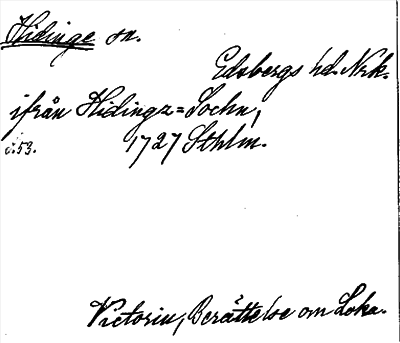 Hidinge sn.
Edsbergs hd. Nrk.
ifrån Hidinga=Sochn,
s. 53. 1727 Sthlm.
Victorin, Berättelse om Loka.